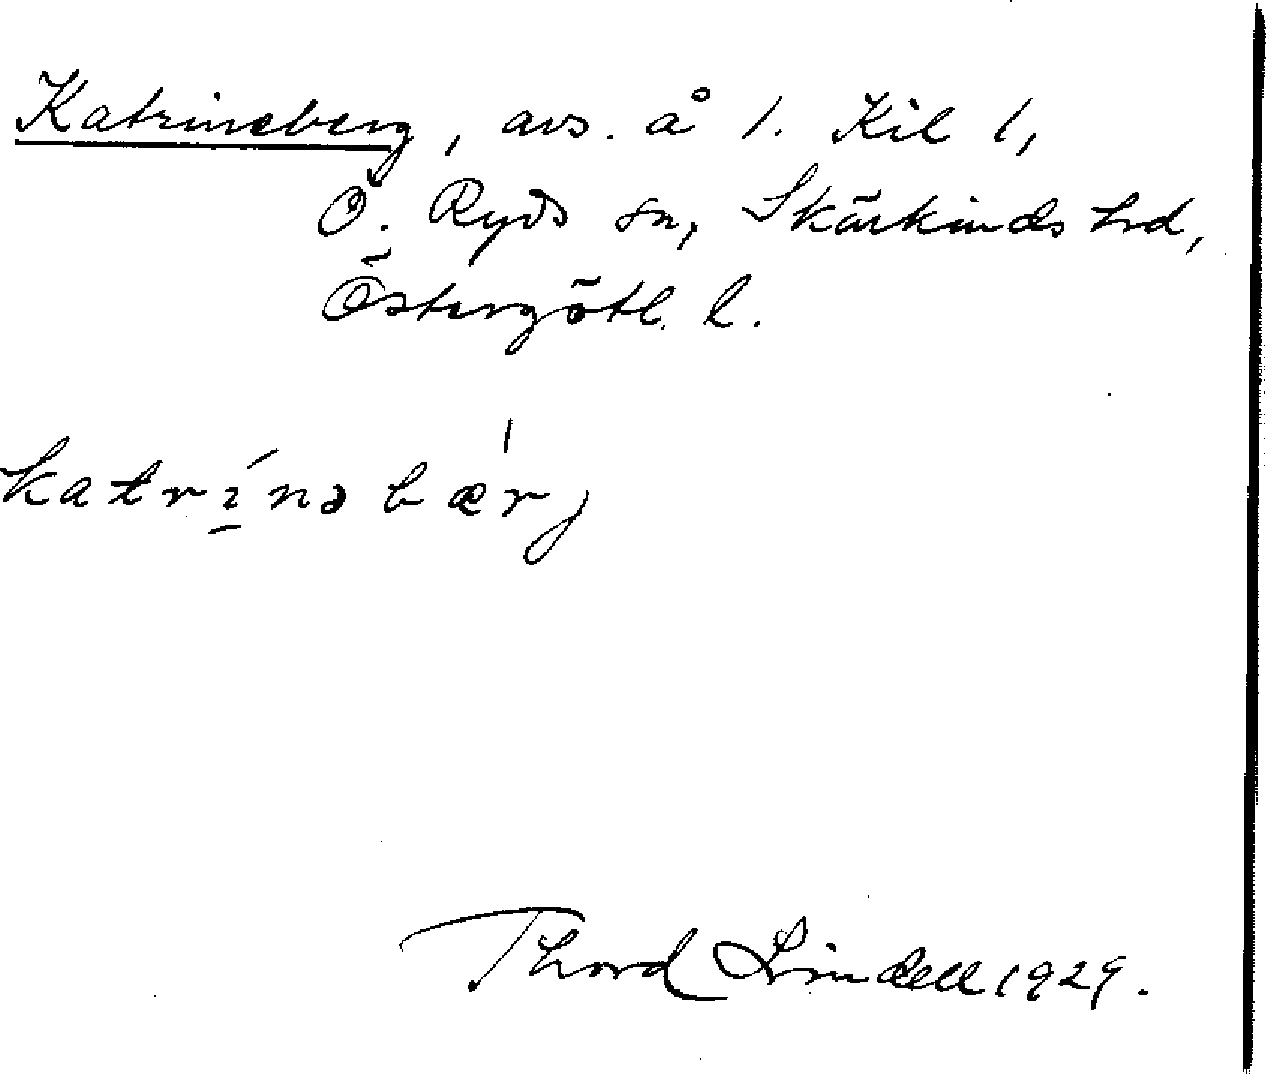 Katrineberg, avs. å 1. Kil 1,
Ö. Ryds sn, Skärkinds hd,
Östergötl. l.
katrí̱nəbærj
Thord Lindell 1929.